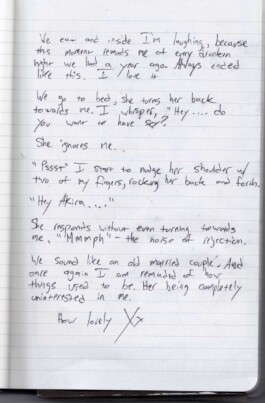 We eat and inside I'm laughing, because
this moment reminds me of every drunken
night we had a year ago. Always ended
like this. I love it
We go to bed, she turns her back
towards me. I whisper, "Hey .... do
you want to have sex?"
She ignores me.
"Pssst" I start to nudge her shoulder w/
two of my fingers, rocking her back and forth.
"Hey Akira...."
She responds without even turning towards
me, "Mmmph" - the noise of rejection.
We sound like an old married couple. And
once again I am reminded of how
things used to be. Her being completely
uninterested in me.
How lovely Xx